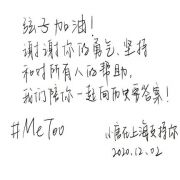 弦子加油！
谢谢你的勇气、坚持
和对所有人的帮助，
我们陪你一起向历史要答案！
#MeToo
小唐在上海支持你
2020.12.02